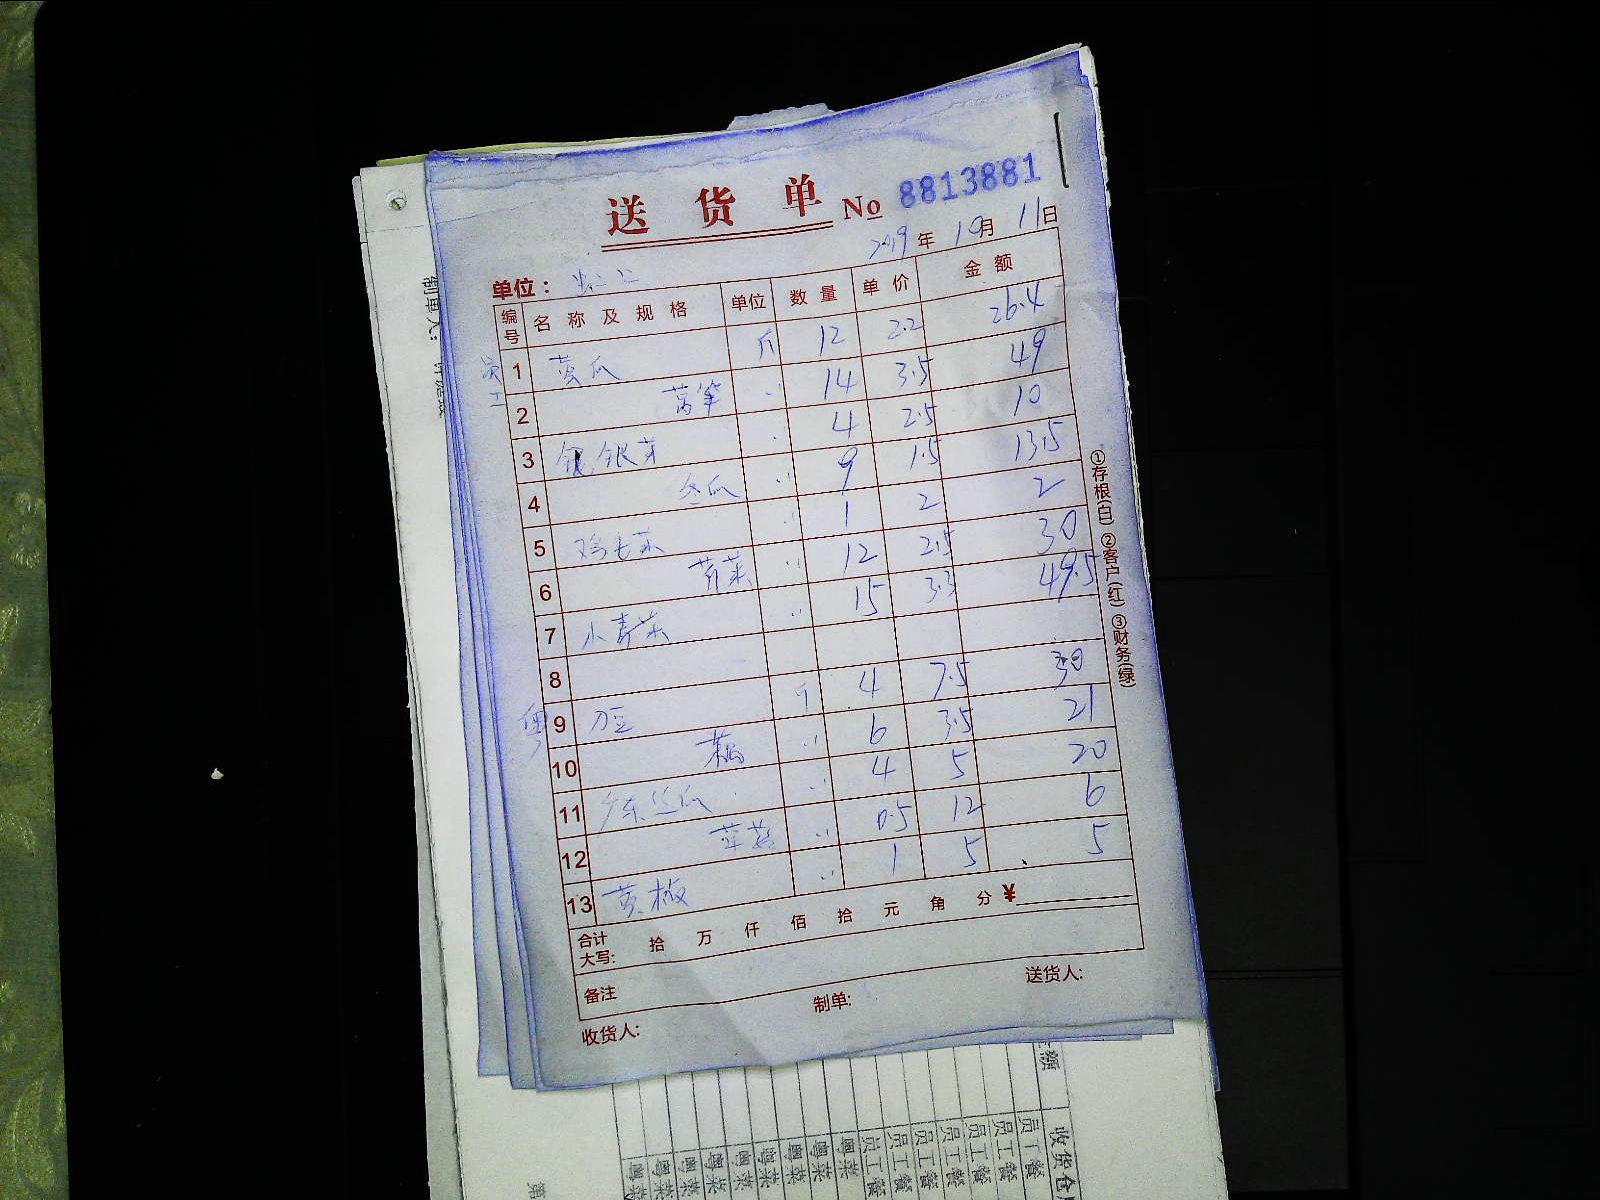 送货单 No 8813881
2019年10月11日
单位：
编号 名称及规格 单位 数量 单价 金额
员工 1 黄瓜 斤 12 2.2 26.4
2 莴笋 〃 14 3.5 49
3 银芽 〃 4 2.5 10
4 冬瓜 〃 9 1.5 13.5
5 鸡毛菜 〃 1 2 2
6 芹菜 〃 12 2.5 30
7 小青菜 〃 15 3.3 49.5
8
粤 9 刀豆 斤 4 7.5 30
10 藕 〃 6 3.5 21
11 广东丝瓜 〃 4 5 20
12 〃 0.5 12 6
13 〃 1 5 5
合计大写: 拾 万 仟 佰 拾 元 角 分 ¥
备注
收货人: 制单: 送货人:
①存根(白) ②客户(红) ③财务(绿)
制单人:
金额
收货仓库
员工餐
员工餐
员工餐
员工餐
员工餐
员工餐
员工餐
粤菜
粤菜
粤菜
粤菜
粤菜
粤菜
粤菜
粤菜
第